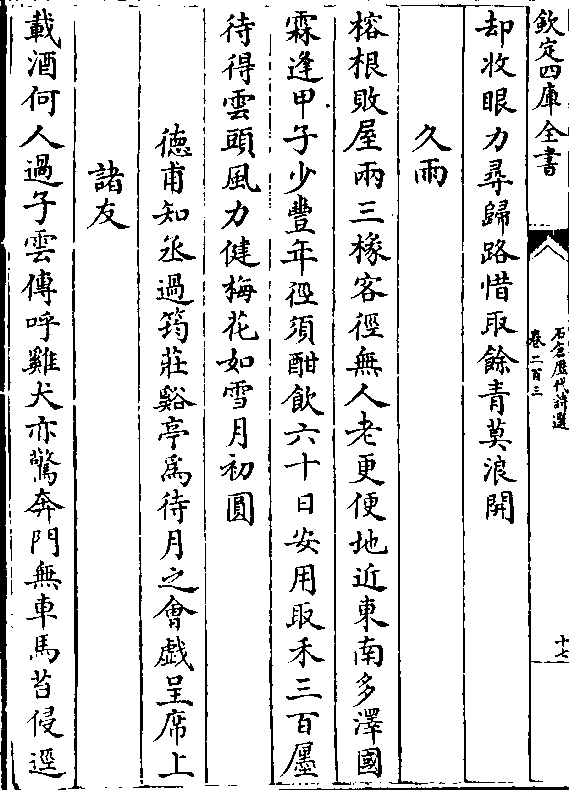 欽定四庫全書
石倉歷代詩選
卷二百三
十七
却收眼力尋歸路惜取餘青莫浪開
久雨
榕根敗屋兩三椽客徑無人老更便地近東南多澤國
霖逢甲子少豐年徑須酣飲六十日安用取禾三百廛
待得雲頭風力健梅花如雪月初圓
德甫知丞過筠莊谿亭爲待月之會戯呈席上
諸友
載酒何人過子雲傳呼雞犬亦驚奔門無車馬苔侵逕